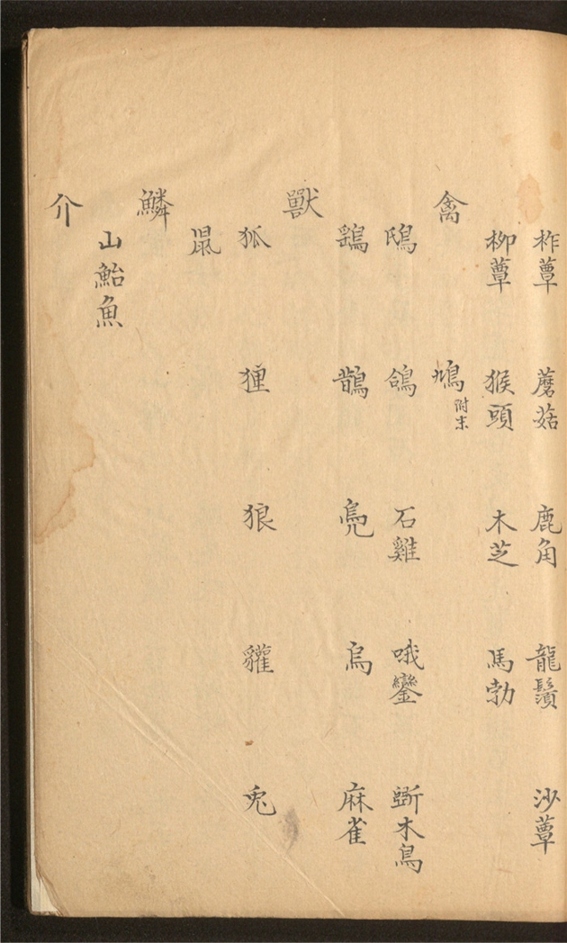 柞蕈 蘑菇 鹿角 龍鬚 沙蕈
柳蕈 猴頭 木芝 馬勃
禽 鳩附末
鴟 鴿 石雞 哦鑾 斲木鳥
鶉 鵲 鳧 烏 麻雀
獸
狐 狸 狼 貛 兎
鼠
鱗
山鮐魚
介